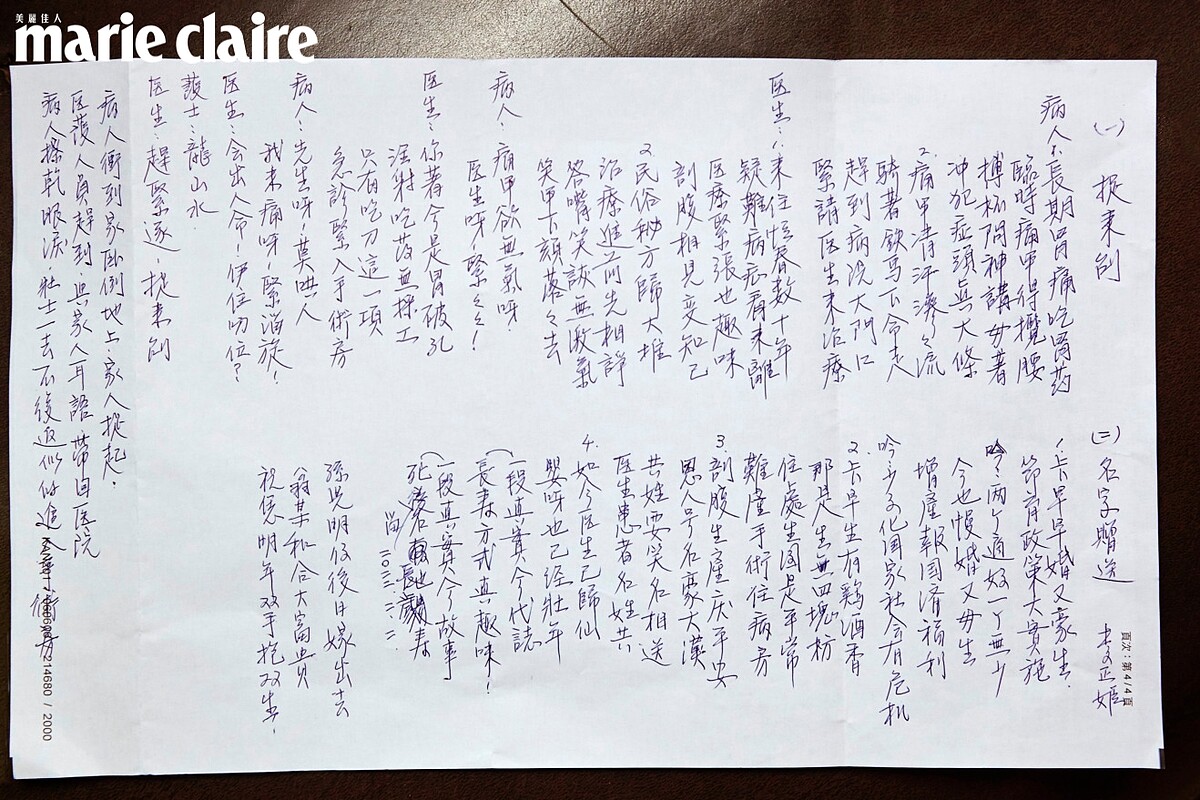 美麗佳人
marie claire
(一) 掠來刣
病人:1.長期胃痛吃胃药
臨時痛甲得攬腰
搏杯問神講毋著
沖犯症頭真大條
2.痛甲清汗濟々流
騎著鉄馬做命走
趕到病院大門口
緊請医生來治療
医生:1.來住恆春数十年
疑難病症看來離
医療緊張也趣味
剖腹相見变知己
2.民俗秘方歸大堆
治療進前先相諍
答嘴笑詼無激氣
笑甲下頦落々去
病人:痛甲欲無氣呀
医生呀!緊々々!
医生:你著今是胃破孔
注射吃药無採工
只有吃刀這一項
急診緊入手術房
病人:先生呀!莫哄人
我未痛呀 緊溜旋!
医生:会出人命!伊住叨位?
護士:龍山水
医生:趕緊逐.掠來刣
病人衝到家 卧倒地上.家人掠起.
医護人員趕到.與家人耳語 帶回医院
病人擦乾眼淚 壯士一去不復返似的進入
手術房
(二) 名字贈送 李正雄
1.卡早早婚又豪生.
節育政策大實施
兩个適好一个無少
今也慢婚又毋生
增產報国済福利
吟.少子化国家社会有危机
2.卡早生有鷄酒香
那是生無四塊枋
住處生囝是平常
難產手術住病房
3.剖腹生產庆平安
恩人号名豪大漢
共姓耍笑名相送
医生患者名姓共
4.如今医生已歸仙
嬰呀也已經壯年
一段真實今代誌
長壽方式真趣味!
一段真實今故事
孫兒明仔後日嫁出去
翁某和合大富貴
祝伊明年双手抱双生!
頁次:第4/4頁
214680 / 2000